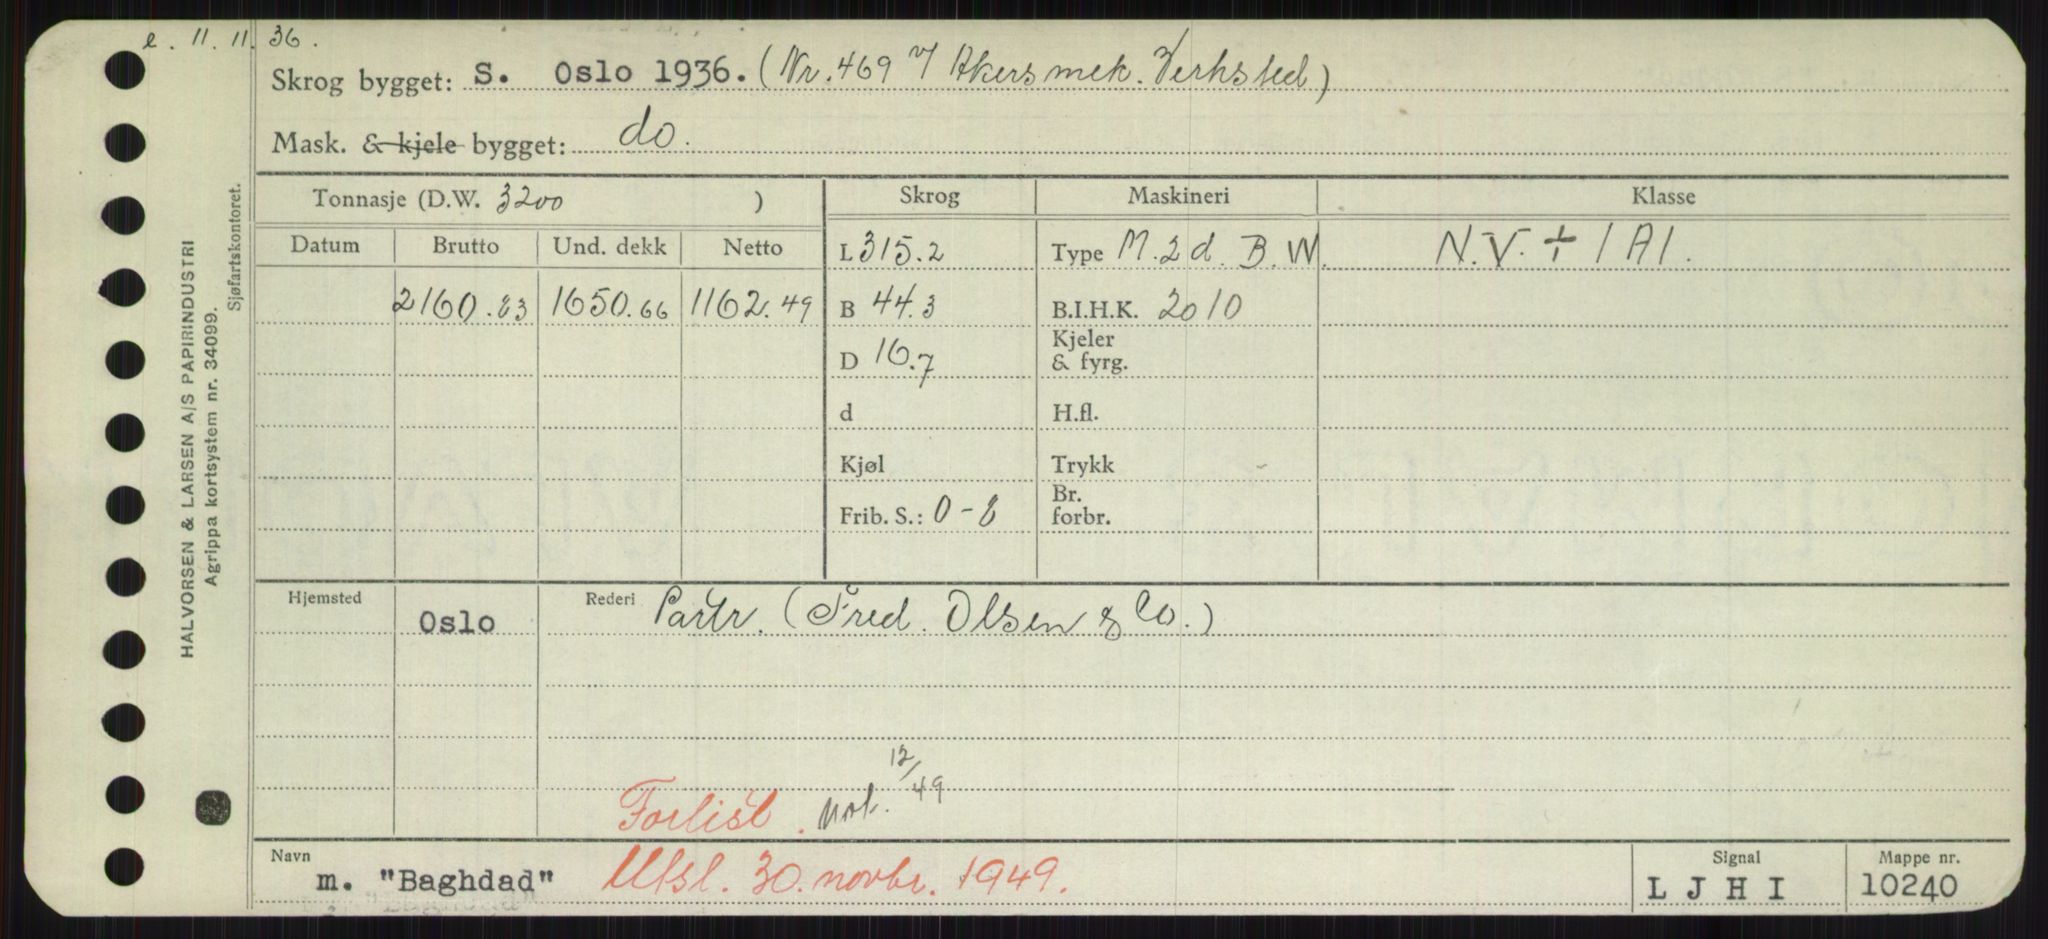 e. 11.11.36.
Skrog bygget: S. Oslo 1936. (Nr. 469 v/ Akers mek. Verksted)
Mask. & kjele bygget: do.
Tonnasje (D.W. 3200 ) Skrog Maskineri Klasse
Datum Brutto Und. dekk Netto L 315.2 Type M. 2 d. B.W. N.V. + 1A1.
2160.83 1650.66 1162.49 B 44.3 B.I.H.K. 2010
D 16.7 Kjeler & fyrg.
d H.fl.
Kjøl Trykk
Frib. S.: 0-8 Br. forbr.
Hjemsted Oslo Rederi Partr. (Fred. Olsen & Co.)
Forlist. not. 12/49
Navn m. "Baghdad" Utsl. 30. novbr. 1949. Signal LJHI Mappe nr. 10240
HALVORSEN & LARSEN A/S PAPIRINDUSTRI
Agrippa kortsystem nr. 34099.
Sjøfartskontoret.